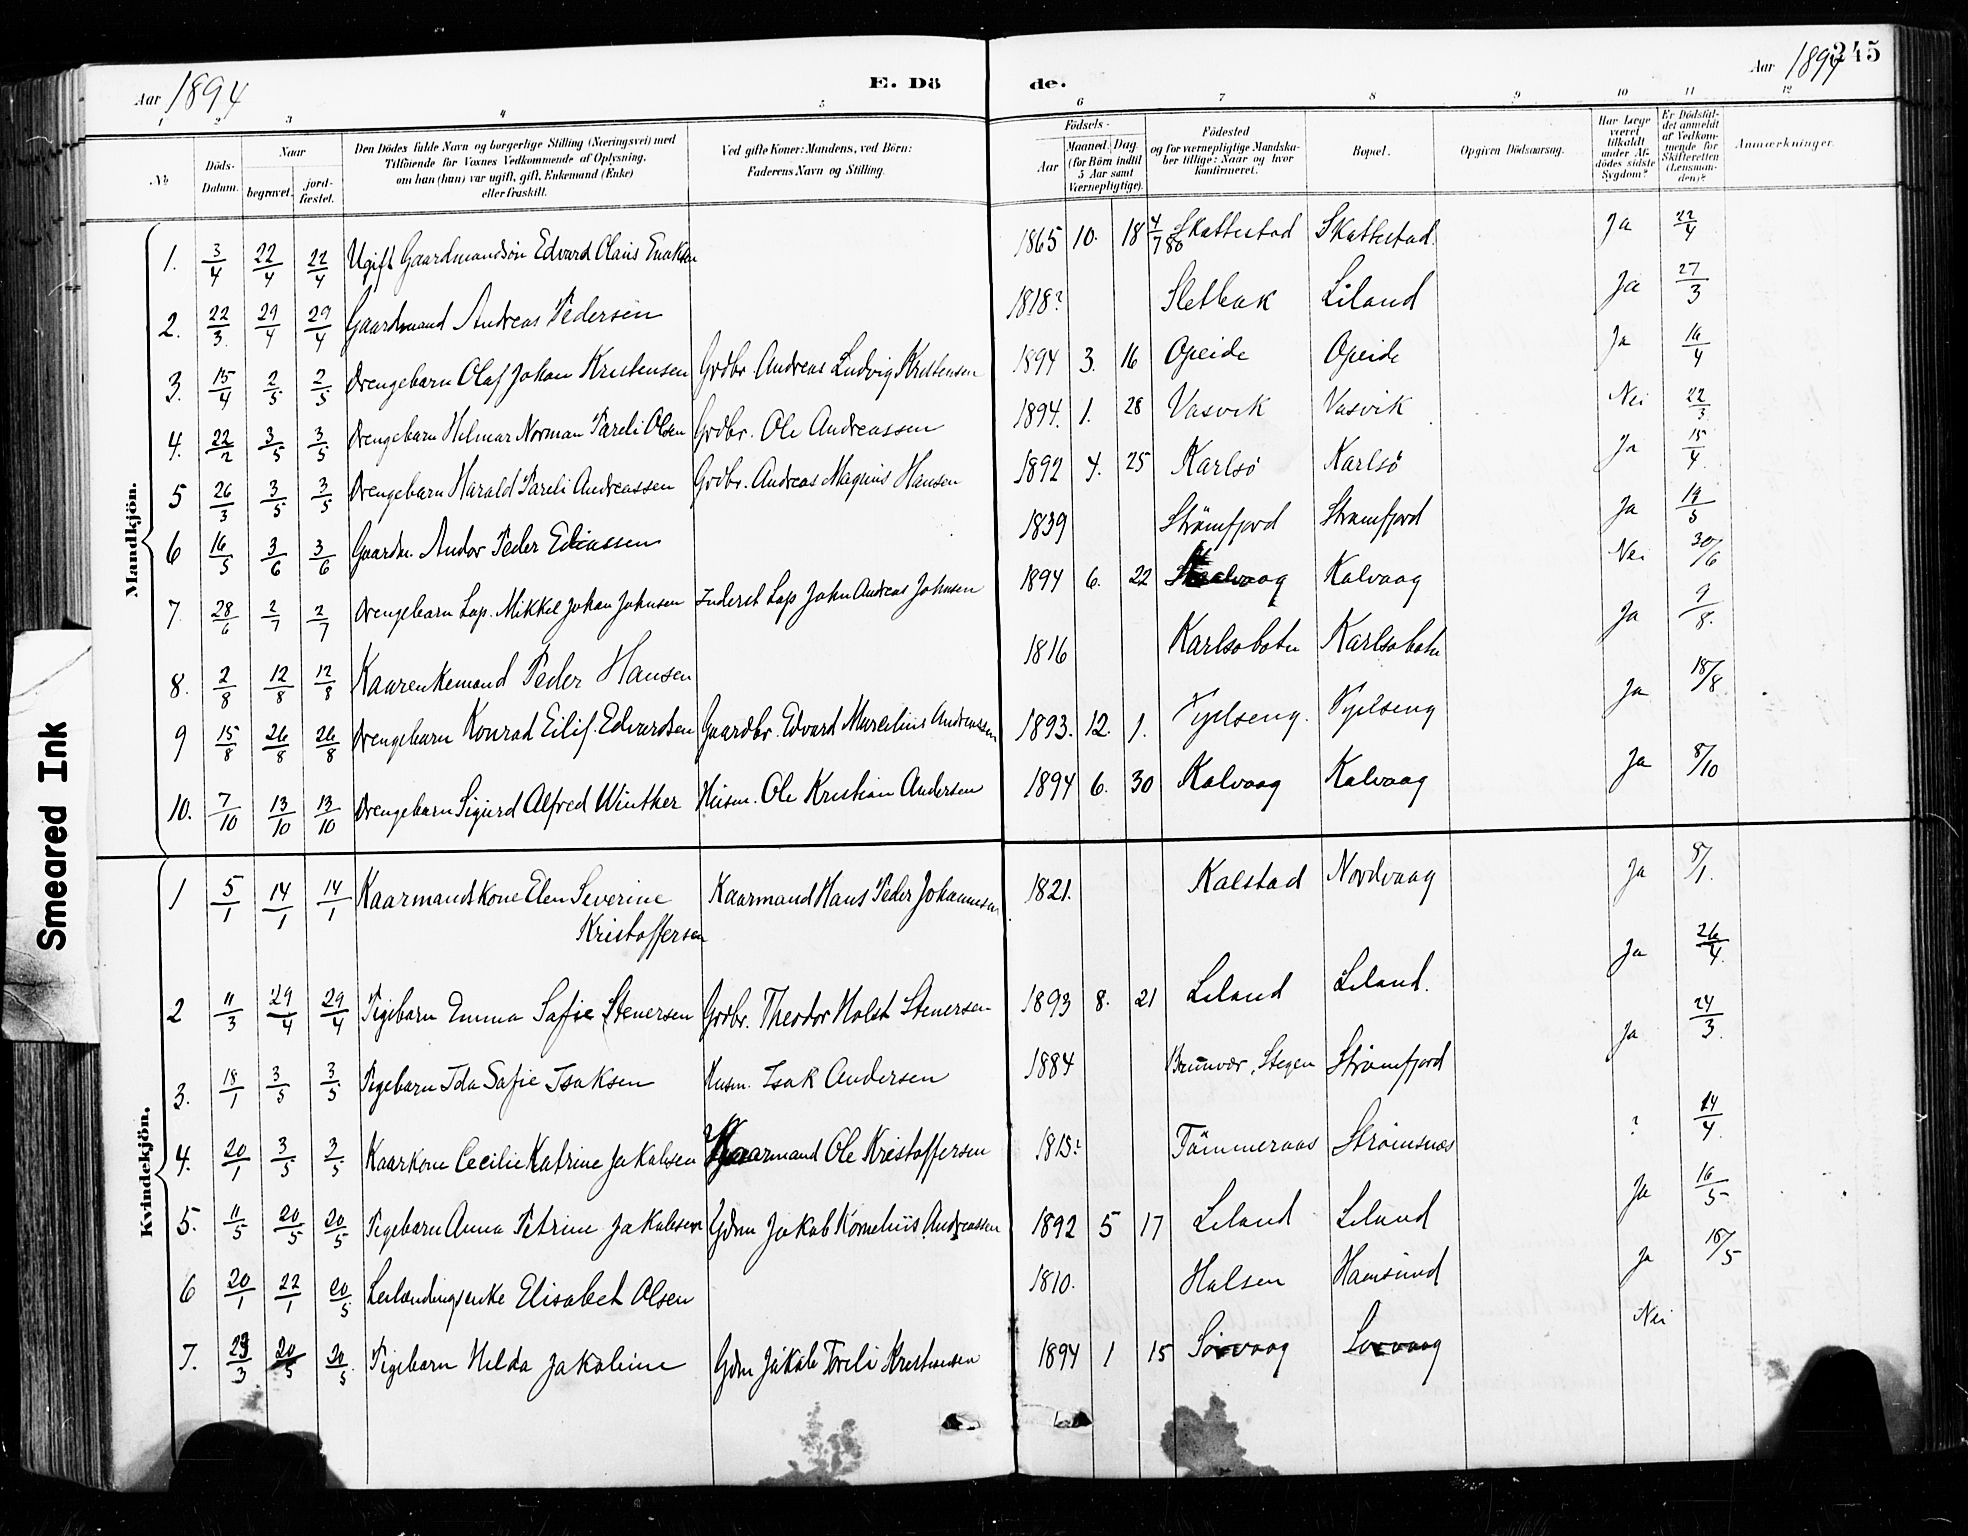 Aar 1894 E. Dö de. Aar 1894 345
1 2 3 4 5 6 7 8 9 10 11 12
No Döds-Datum. Naar begravet. jord-fæstet. Den Dödes fulde Navn og borgerlige Stilling (Næringsvei) med Tilföiende for Voxnes Vedkommende af Oplysning, om han (hun) var ugift, gift, Enkemand (Enke) eller fraskilt. Ved gifte Koner: Mandens, ved Börn: Faderens Navn og Stilling. Födsels- Aar Maaned. Dag. (for Börn indtil 5 Aar samt Værnepligtige). Födested og for værnepligtige Mandskaber tillige: Naar og hvor konfirmeret. Bopæl. Opgiven Dödsaarsag. Har Læge været tilkaldt under Afdödes sidste Sygdom? Er Dödsfaldet anmeldt af Vedkommende for Skifteretten (Lensmanden)? Anmærkninger.
Mandkjön.
1. 3/4 22/4 22/4 Ugift Gaardmandsön Edvard Olaus 1865 10. 18 4/7 80 Skattestad Skattestad. Ja 22/4
2. 22/3 29/4 29/4 Gaardmand Andreas Pedersen 1818? Sletbak Liland Ja 27/3
3. 15/4 2/5 2/5 Drengebarn Olaf Johan Kristensen Grdbr. Andreas Ludvig Kristensen 1894 3. 16 Opeide Opeide Ja 16/4
4. 22/2 3/5 3/5 Drengebarn Hilmar Norman Pareli Olsen Grdbr. Ole Andreassen 1894. 1. 28 Vasvik Vasvik Nei 22/3
5 26/3 3/5 3/5 Drengebarn Harald Pareli Andreassen Grdbr. Andreas Magnus Hansen 1892 4. 25 Karlsö Karlsö Ja 15/4
6 16/5 3/6 3/6 Gaardm. Andor Peder Eliassen 1839 Strömfjord Strømfjord Ja 19/5
7. 28/6 2/7 2/7 Drengebarn Lap. Mikkel Johan Johnsen Inderst Lap John Andreas Johnsen 1894 6. 22 Kalvaag Nei 30/6
8. 2/8 12/8 12/8 Kaarenkemand Peder Hansen 1816 Karlsøbotn Karlsøbotn Ja 9/8.
9 15/8 26/8 26/8 Drengebarn Konrad Eilif Edvardsen Gaardbr. Edvard Marselius Andreassen 1893. 12. 1. Ja 18/8
10. 7/10 13/10 13/10 Drengebarn Sigurd Alfred Winther Husm. Ole Kristian Andersen 1894 6. 30 Kalvaag Kalvaag Ja 8/10
Kvindekjön.
1 5/1 14/1 14/1 Kaarmandskone Elen Severine Kaarmand Hans Peder Johannesen 1821. Kalstad Nordvaag Ja 8/1.
Kristoffersen
2 11/3 29/4 29/4 Pigebarn Emma Safie Stenersen Grdbr. Theodor Holst Stenersen 1893 8. 21 Liland Liland. Ja 26/4
3. 18/1 3/5 3/5 Pigebarn Ida Safie Isaksen Husm. Isak Andersen 1884 Brunvær, Stegen Strømfjord Ja 24/3.
4. 20/1 3/5 3/5 Kaarkone Cecilie Katrine Jakobsen Kaarmand Ole Kristoffersen 1813? Tömmeraas Strømsnæs ? 14/4.
5. 11/5 20/5 20/5 Pigebarn Anna Petrine Jakobsen Gdm Jakob Kornelius Andreassen 1892 5 17 Liland Liland Ja 16/5
6 20/1 22/1 20/5 Leilændingsenke Elisabet Olsen 1810. Halsen Hamsund Ja 18/5
7. 23/3 20/5 20/5 Pigebarn Hilda Jakobine Gdm Jakob Toreli Kristensen 1894 1 15 Sörvaag Sørvaag Nei
Smeared Ink